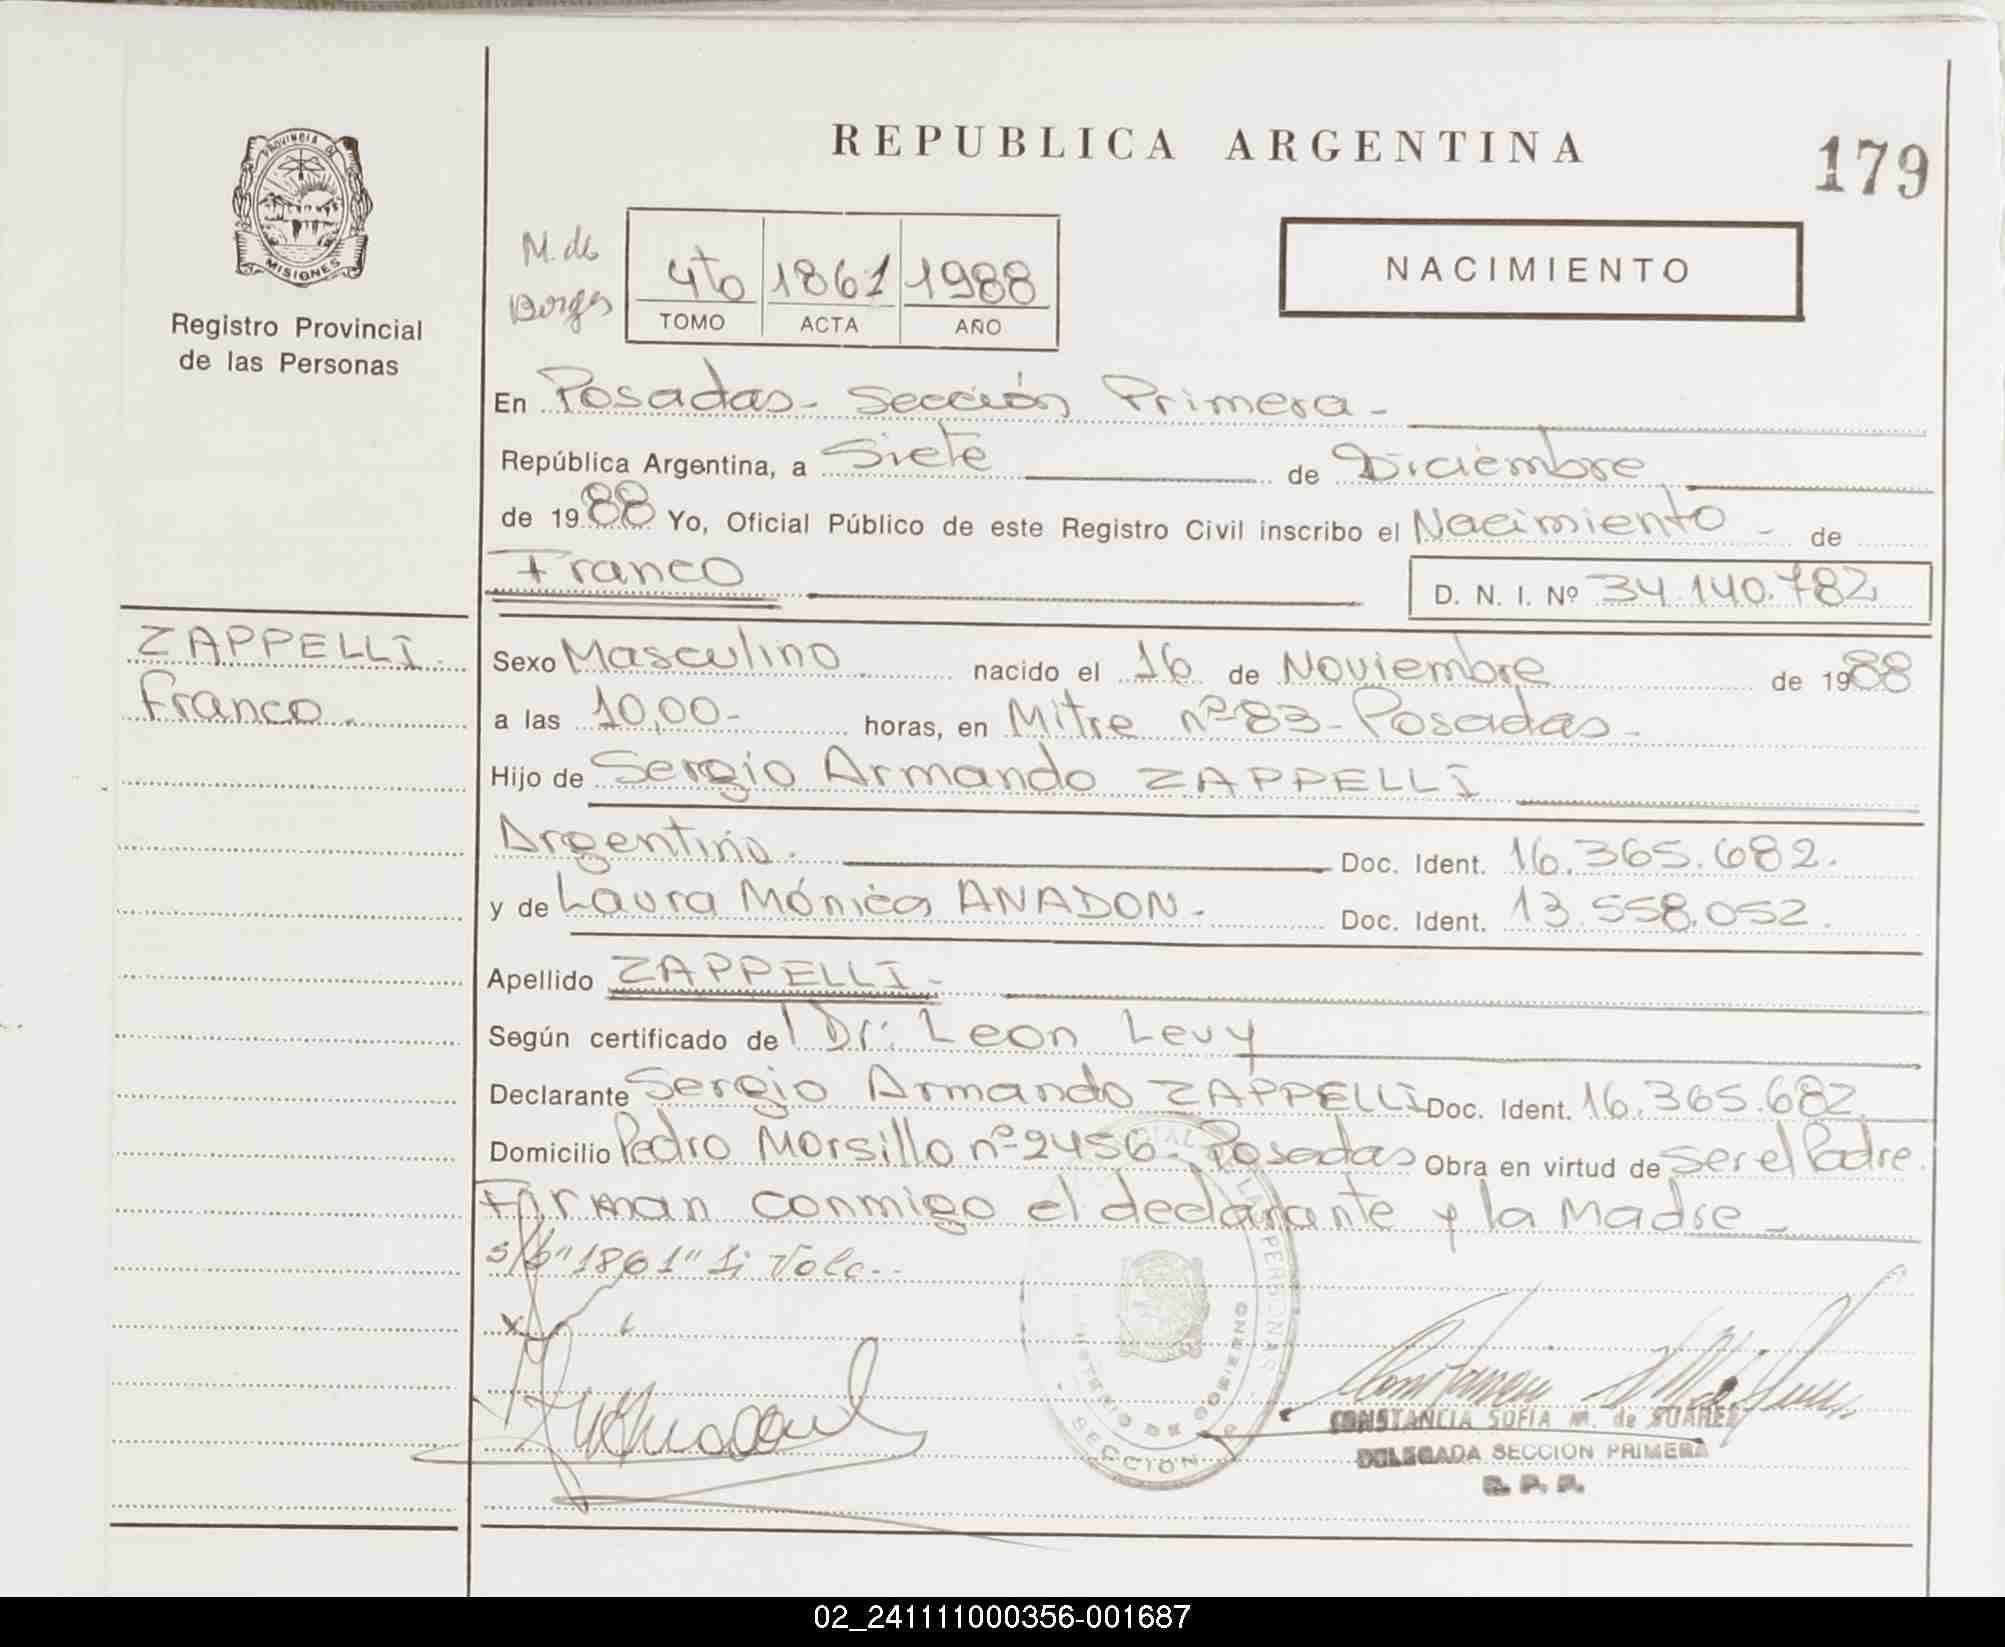 REPUBLICA ARGENTINA
179
PROVINCIA DE
MISIONES
Registro Provincial
de las Personas
M. de
Borges
4to 1861 1988
TOMO ACTA AÑO
NACIMIENTO
En Posadas - Sección Primera -
República Argentina, a Siete de Diciembre
de 1988 Yo, Oficial Público de este Registro Civil inscribo el Nacimiento - de
Franco
D. N. I. Nº 34.140.782
ZAPPELLI
Franco.
Sexo Masculino nacido el 16 de Noviembre de 1988
a las 10,00- horas, en Mitre nº 83 - Posadas.
Hijo de Sergio Armando ZAPPELLI
Argentino. Doc. Ident. 16.365.682.
y de Laura Mónica ANADON. Doc. Ident. 13.558.052.
Apellido ZAPPELLI -
Según certificado de Dr. Leon Levy
Declarante Sergio Armando ZAPPELLI Doc. Ident. 16.365.682
Domicilio Pedro Morsillo nº 2456 - Posadas Obra en virtud de Ser el Padre.
Firman conmigo el declarante y la Madre -
s/b "1861" Si Vale..
PERSONAS
DE GOBIERNO
SECCION
CONSTANCIA SOFIA M. de SUAREZ
DELEGADA SECCION PRIMERA
R. P. P.
02_241111000356-001687